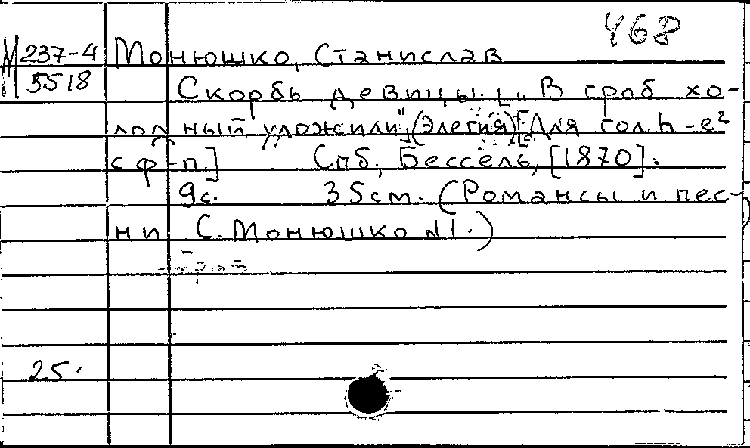 468
М 237-4 Монюшко, Станислав
5518 Скорбь девицы. „В гроб хо-
лодный уложили" (Элегия) [Для гол. h-e²
с ф-п.] Спб, Бессель, [1870].
9с. 35см. (Романсы и пес-
ни С. Монюшко №1.)
25.